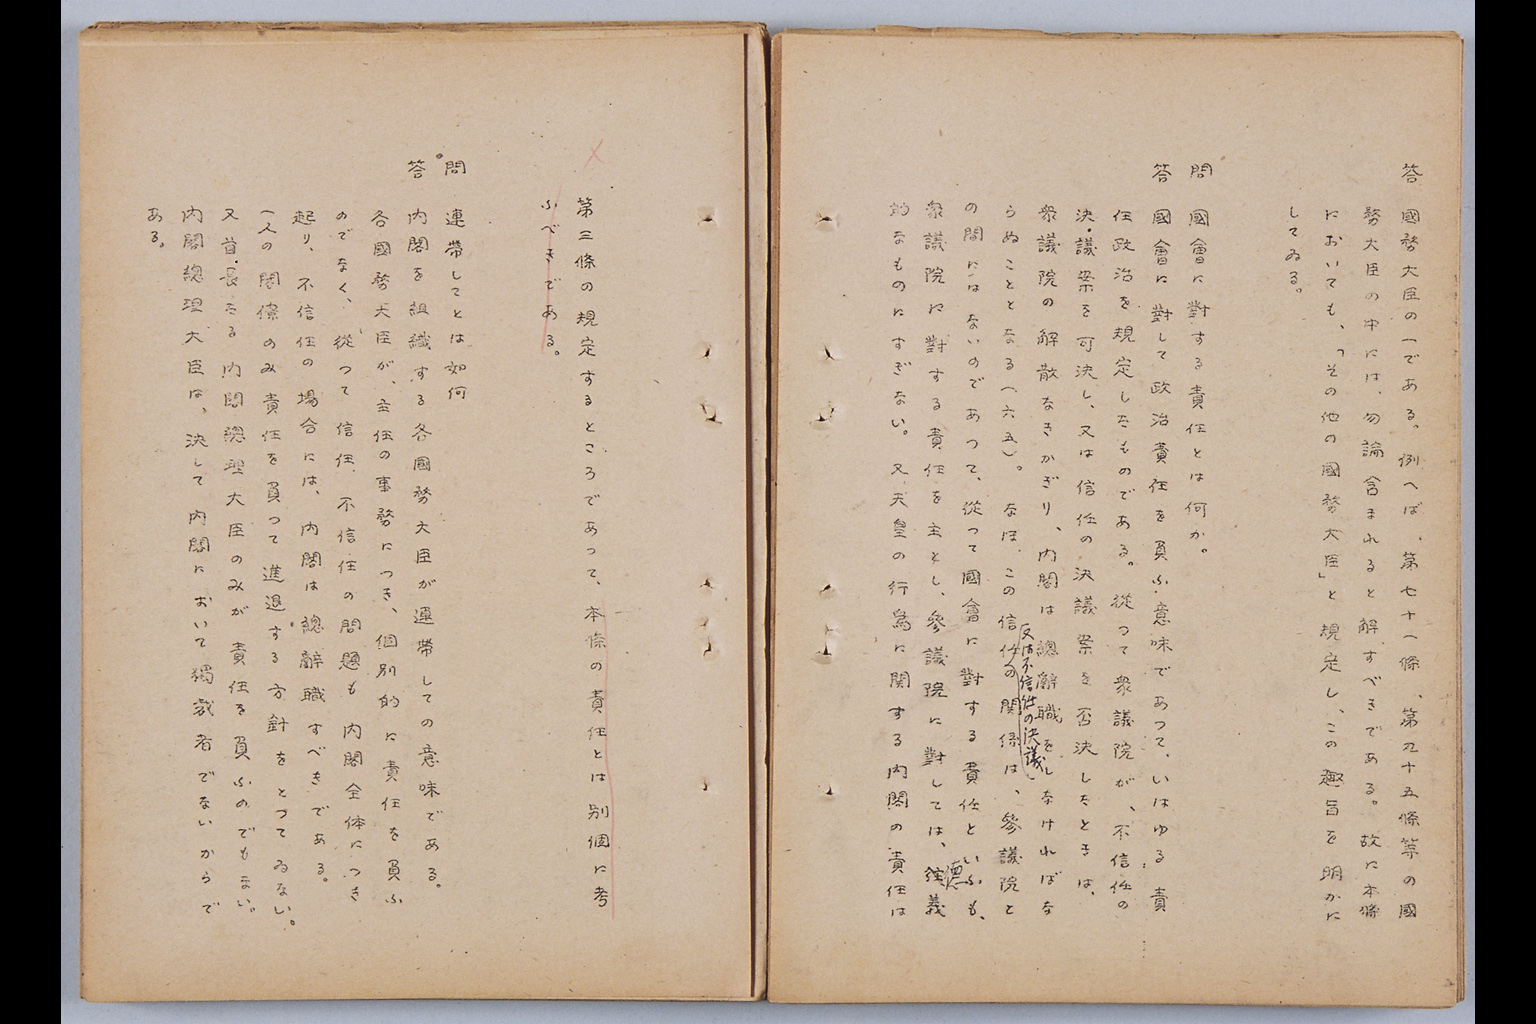 答　國務大臣の一である。例へば、第七十一條、第九十五條等の國
務大臣の中には、勿論含まれると解すべきである。故に本條
においても、「その他の國務大臣」と規定し、この趣旨を明かに
してゐる。
問　國會に對する責任とは何か。
答　國會に對して政治責任を負ふ意味であつて、いはゆる責
任政治を規定したものである。從つて衆議院が、不信任の
決議案を可決し、又は信任の決議案を否決したときは、
衆議院の解散なきかぎり、内閣は總辭職をしなければな
らぬこととなる（六五）。なほ、この信任の関係は、參議院と
反は不信任の決議
の間にはないのであつて、從つて國會に對する責任といふも、
衆議院に對する責任を主とし、參議院に對しては、往義
德
的なものにすぎない。又天皇の行為に関する内閣の責任は
第三條の規定するところであつて、本條の責任とは別個に考
ふべきである。
問　連帶してとは如何
答　内閣を組織する各國務大臣が連帶しての意味である。
各國務大臣が、主任の事務につき、個別的に責任を負ふ
のでなく、從つて信任、不信任の問題も内閣全体につき
起り、不信任の場合には、内閣は總辭職すべきである。
一人の閣僚のみ責任を負つて進退する方針をとつてゐない。
又首長たる内閣總理大臣のみが責任を負ふのでもない。
内閣總理大臣は、決して内閣において獨裁者でないからで
ある。